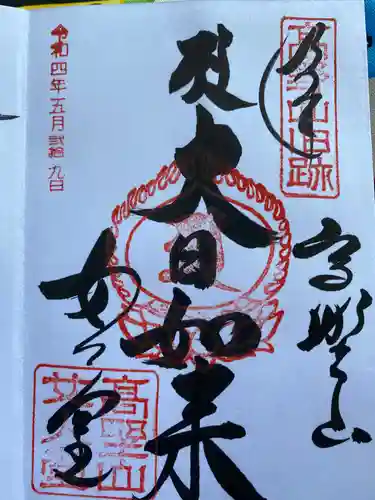 奉拝
高野山旧跡
高野山
大日如来
女人堂
高野山
女人堂
令和四年五月弐拾九日